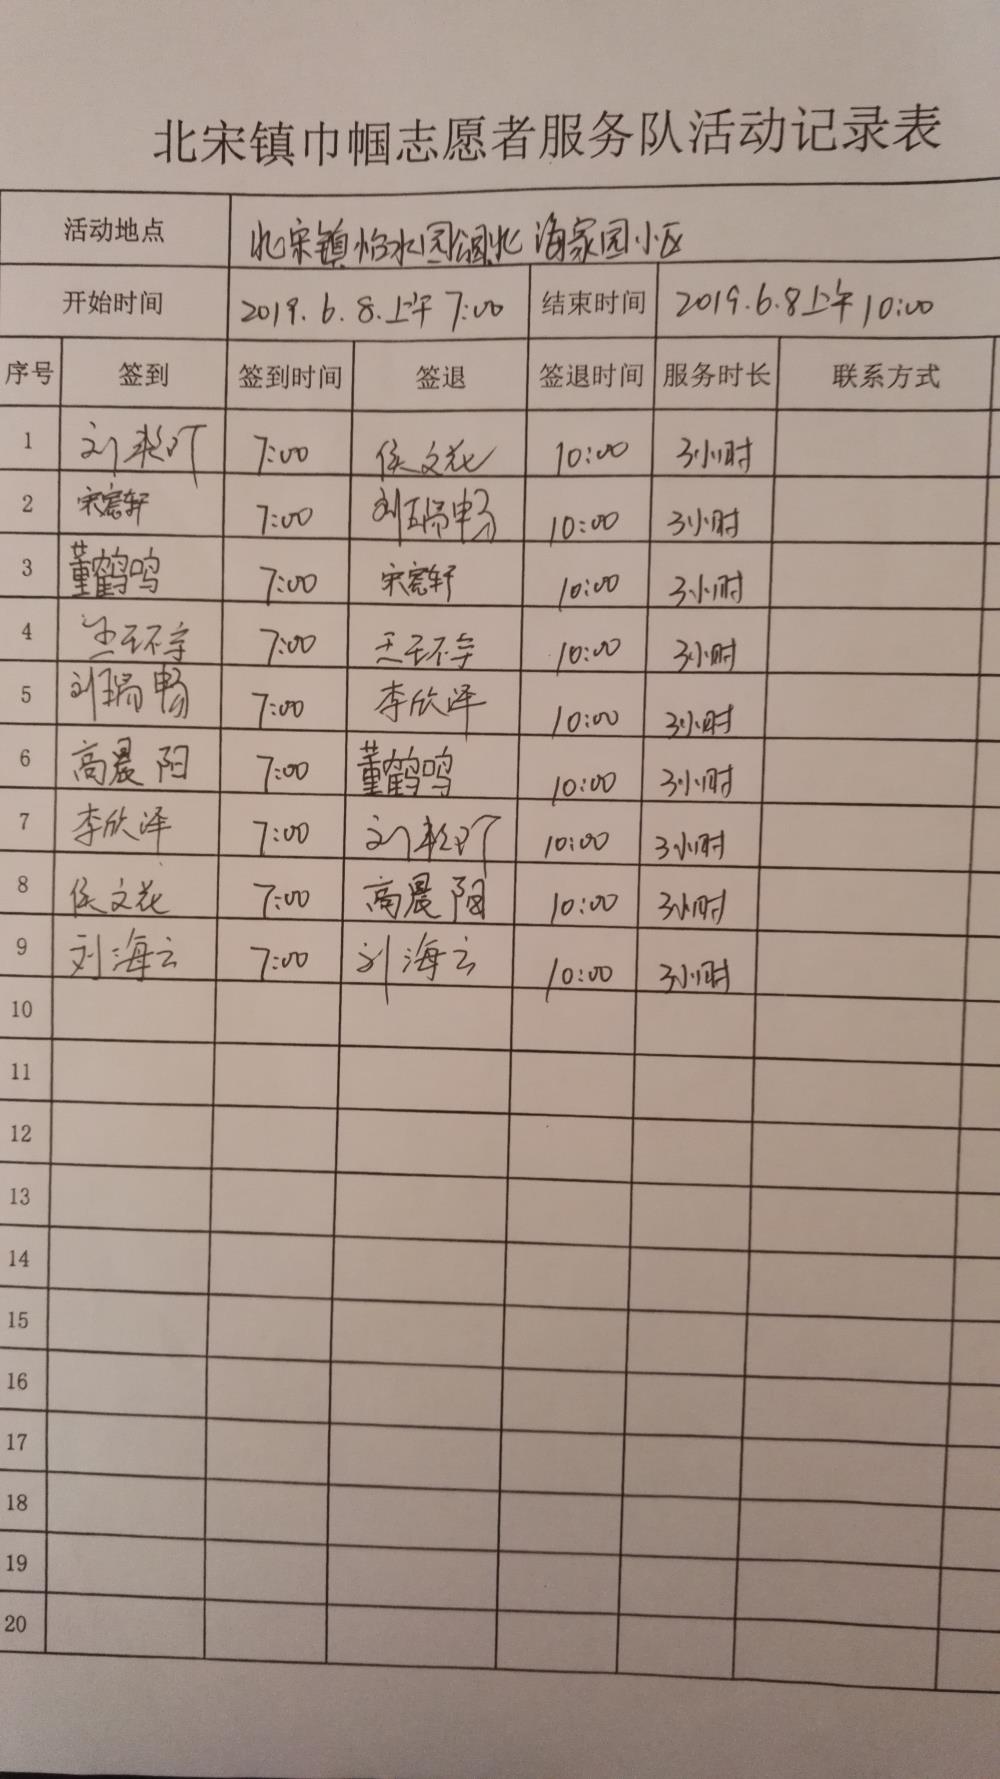 北宋镇巾帼志愿者服务队活动记录表
活动地点 北宋镇怡水园公园北 海家园小区
开始时间 2019.6.8.上午 7:00 结束时间 2019.6.8上午10:00
序号 签到 签到时间 签退 签退时间 服务时长 联系方式
1 刘 7:00 侯文花 10:00 3小时
2 宋宪轩 7:00 刘瑞畅 10:00 3小时
3 董鹤鸣 7:00 宋宪轩 10:00 3小时
4 7:00 10:00 3小时
5 刘瑞畅 7:00 李欣泽 10:00 3小时
6 高晨阳 7:00 董鹤鸣 10:00 3小时
7 李欣泽 7:00 刘 10:00 3小时
8 侯文花 7:00 高晨阳 10:00 3小时
9 刘海云 7:00 刘海云 10:00 3小时
10
11
12
13
14
15
16
17
18
19
20